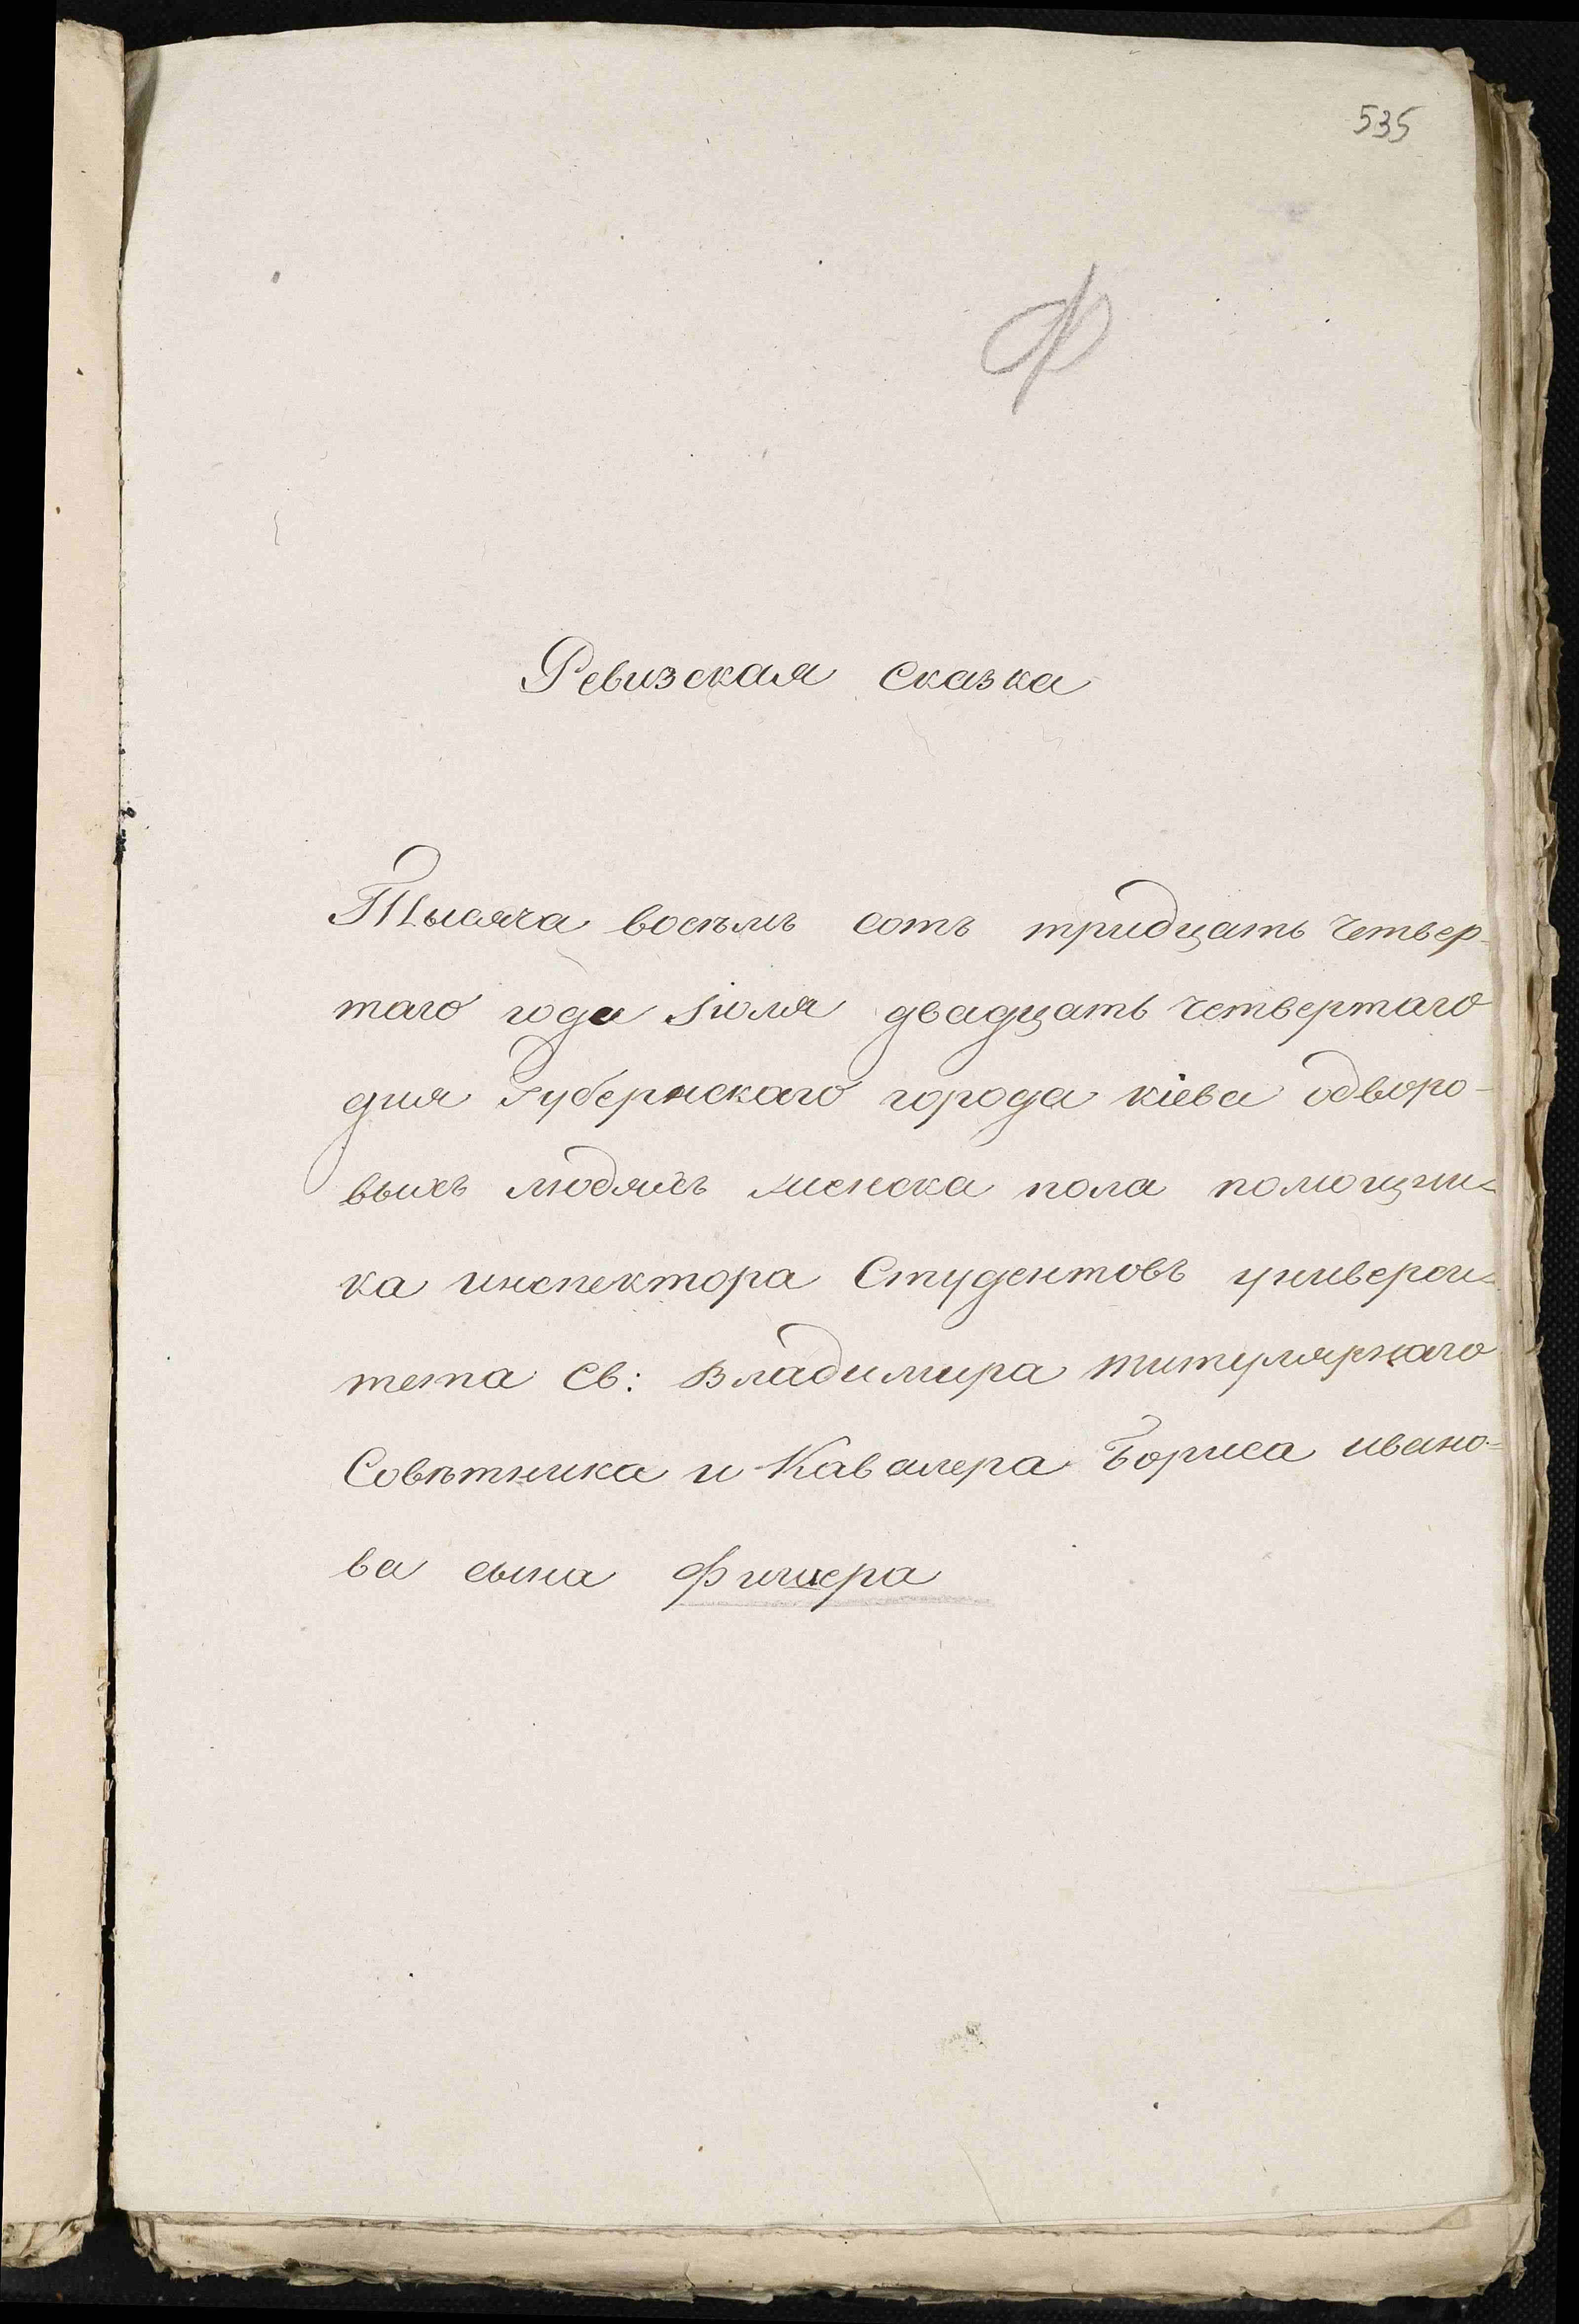 535
Ф
Ревизская сказка
Тысяча восѣмъ сотъ тридцать четвер-
таго года Іюля двадцать четвертаго
дня Губернскаго города кіева одворо-
выхъ людяхъ женска пола помощни-
ка инспектора Студентовъ универси-
тета Св: Владимира титулярнаго
Совѣтника и Кавалера Бориса ивано-
ва сына Фишера